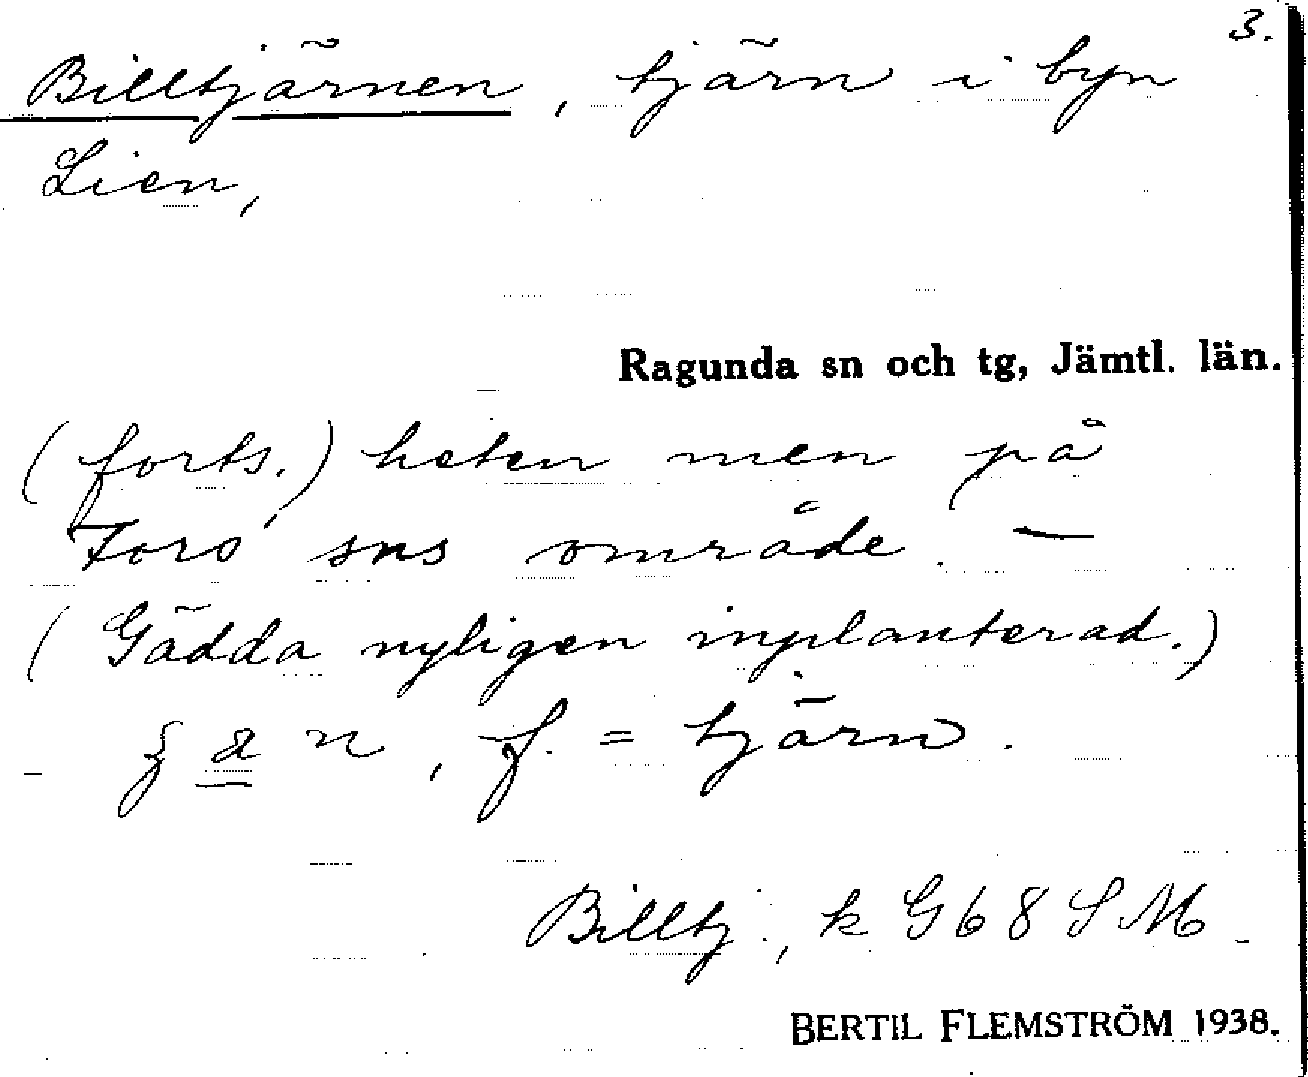 3.
Billtjärnen, tjärn i byn
Lien,
Ragunda sn och tg, Jämtl. län.
(forts.) heten men på
Fors sns område. —
(Gädda nyligen inplanterad.)
n, f. = tjärn.
Billtj., k G68SM
BERTIL FLEMSTRÖM 1938.